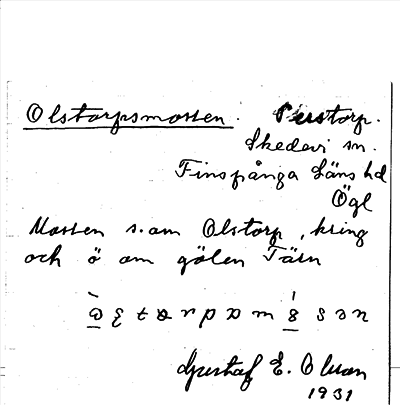 Olstorpsmossen. Perstorp.
Skedevi sn.
Finspånga Läns hd
Ögl
Mossen s.om Olstorp, kring
och ö om gölen Tärn
Gustaf E. Olson
1931